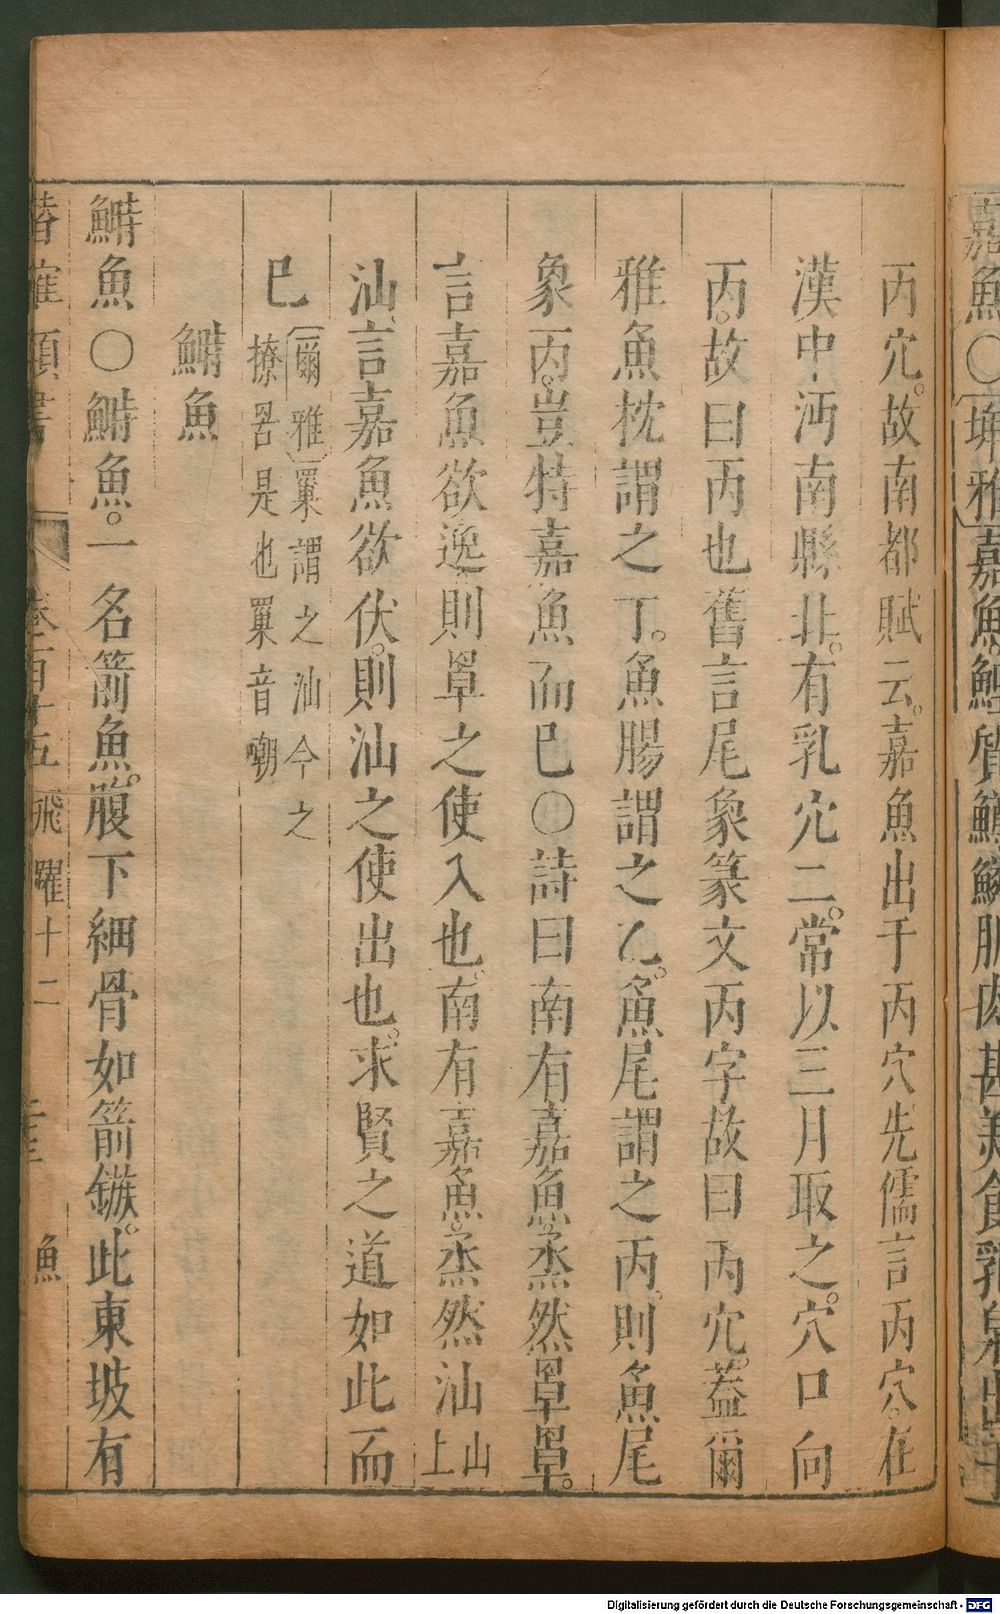 嘉魚○埤雅嘉魚。鯉質鱒鱗肌肉甚美食乳泉出于
丙穴。故南都賦云。嘉魚出于丙穴先儒言丙穴。在
漢中沔南縣北。有乳穴二。常以三月取之。穴口向
丙。故曰丙也舊言尾象篆文丙字故曰丙穴。蓋爾
雅魚枕謂之丁。魚腸謂之乙。魚尾謂之丙。則魚尾
象丙。豈特嘉魚而已○詩曰南有嘉魚。烝然罩罩。
言嘉魚欲逸則罩之使入也。南有嘉魚。烝然汕山上
汕。言嘉魚欲伏。則汕之使出也。求賢之道如此而
已爾雅罺謂之汕今之
撩罟是也罺音嘲
鰣魚
鰣魚○鰣魚。一名箭魚。腹下細骨如箭鏃。此東坡有
卷一百十五 飛躍十二 魚
Digitalisierung gefördert durch die Deutsche Forschungsgemeinschaft - DFG